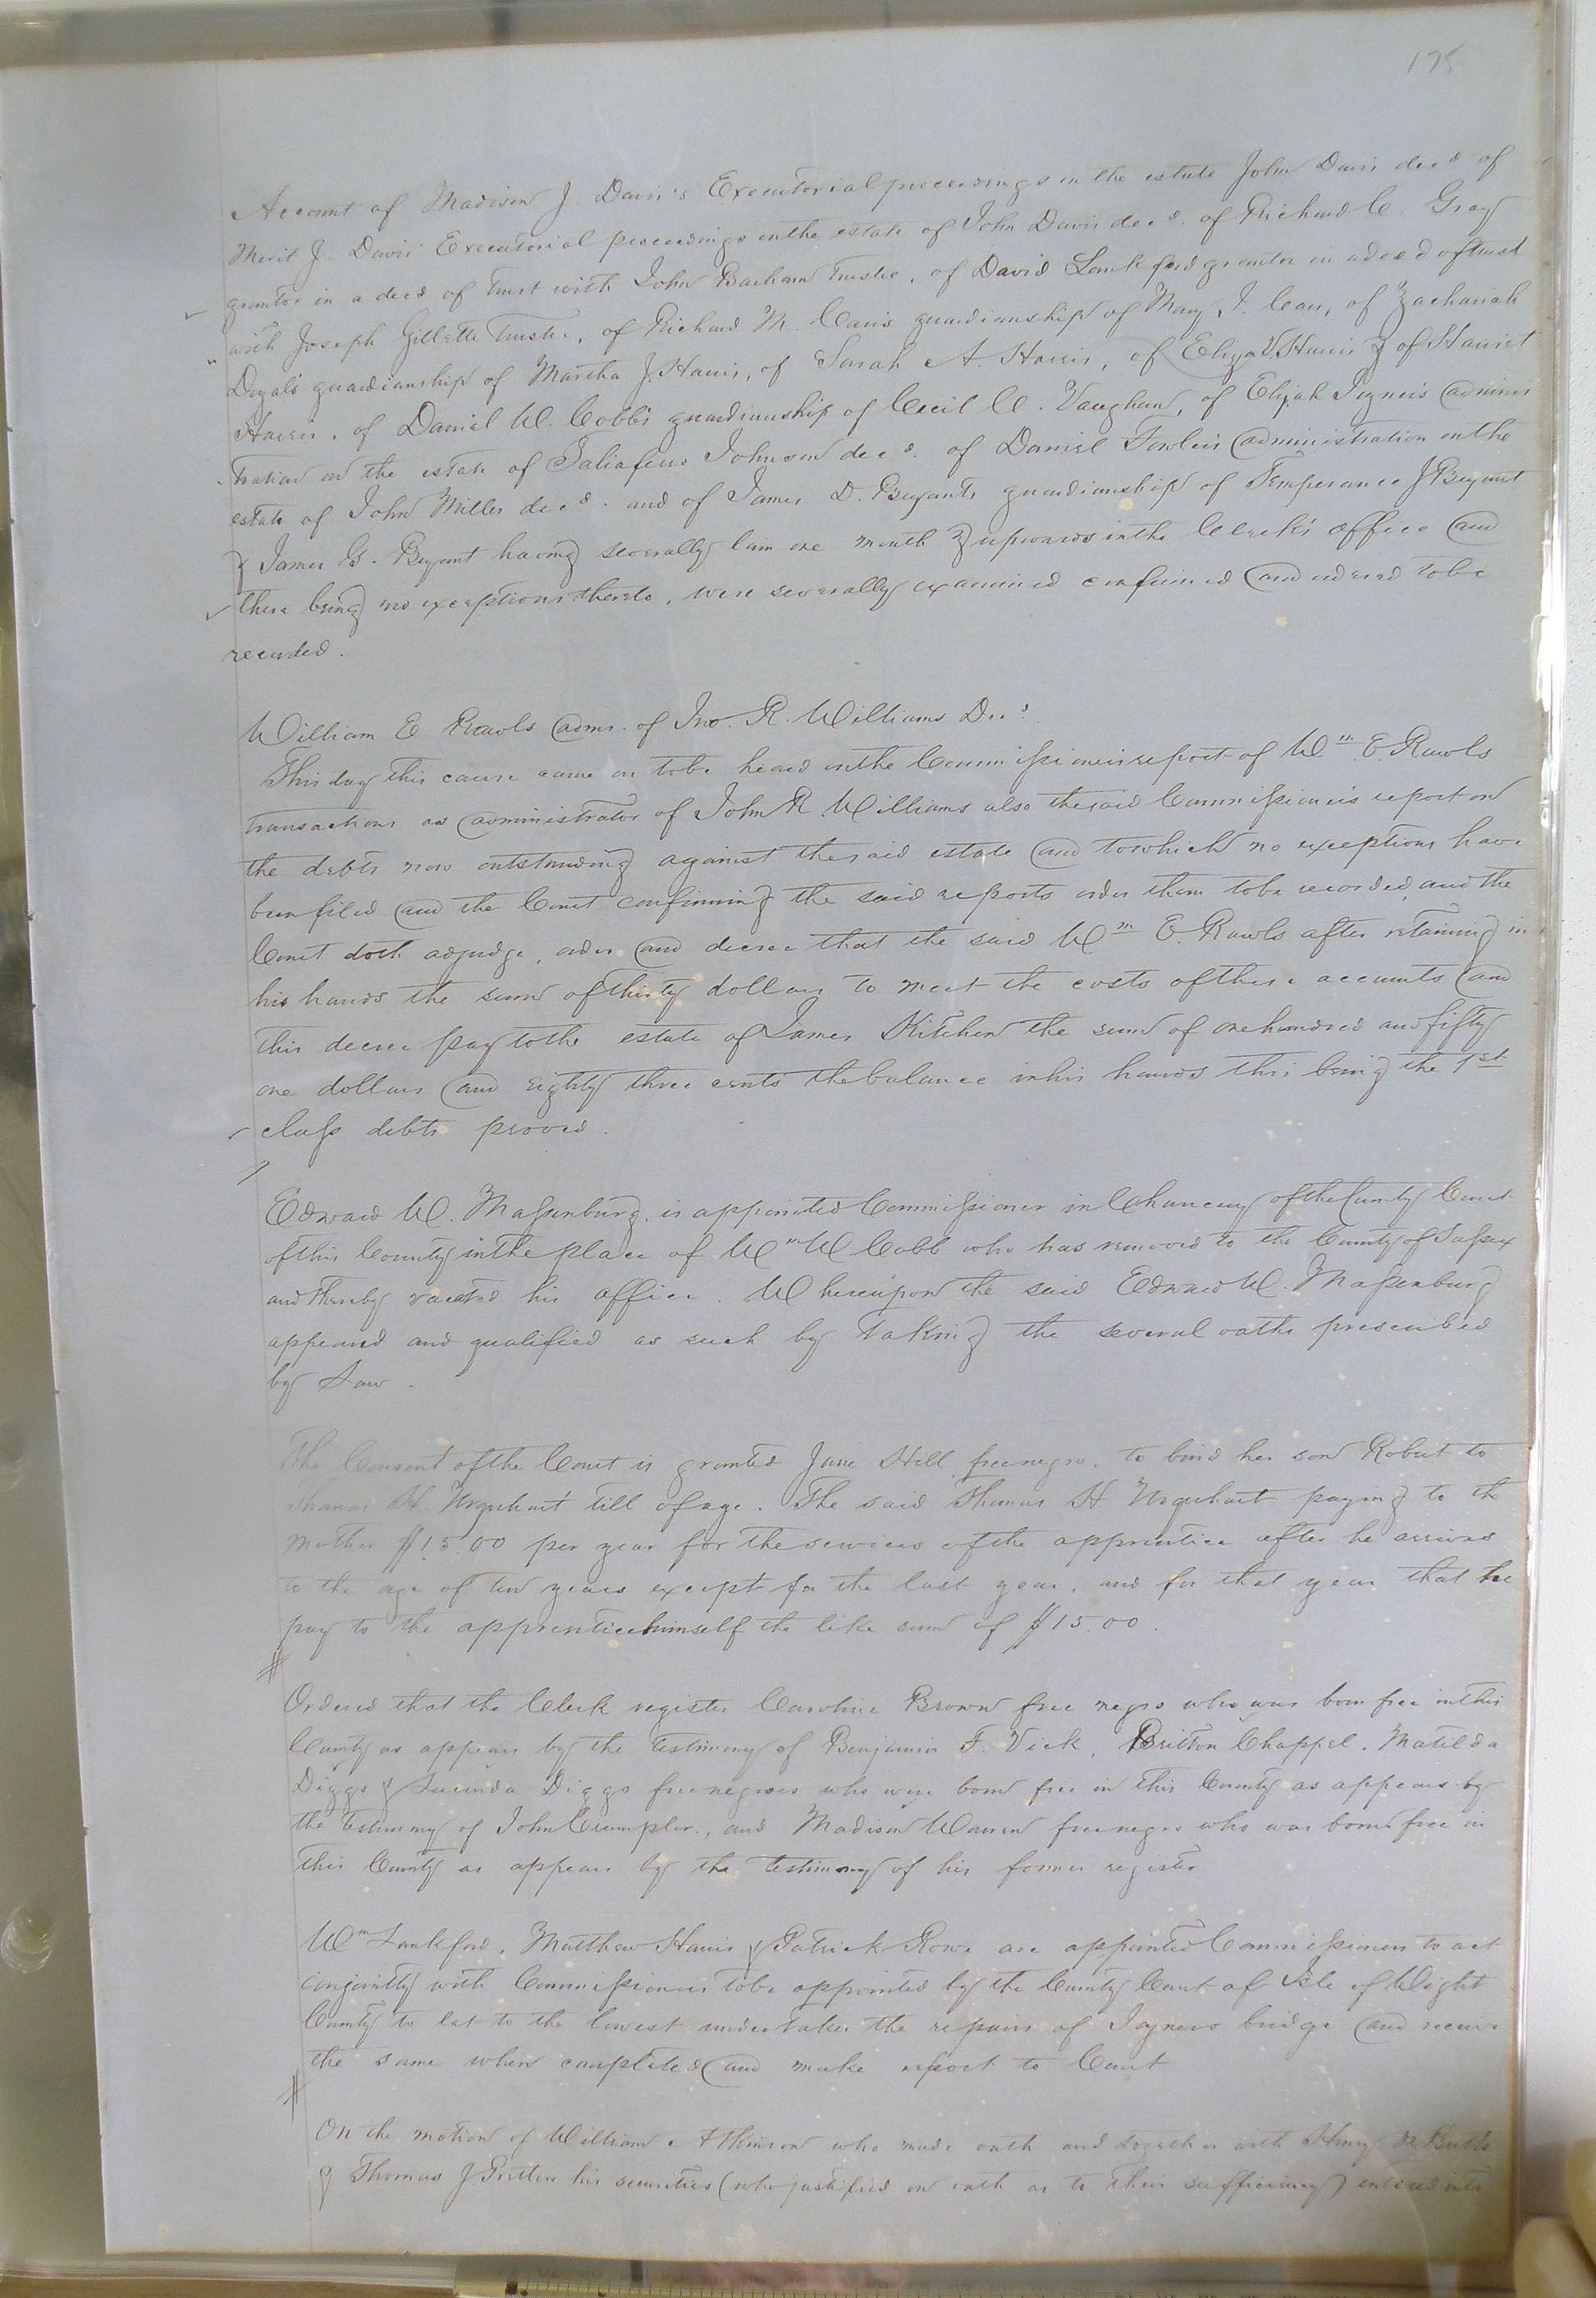 175
Account of Madison J. Davis's Executorial proceedings on the estate John Davis decd of
Merit J. Davis' Executorial proceedings on the estate of John Davis decd. of Richard C. Gray
grantor in a deed of trust with John Barham Trustee, of David Lankford grantor in a deed of trust
with Joseph Gillette Trustee, of Richard M. Carr's guardianship of Mary J. Carr, of Zachariah
Doyal's guardianship of Martha J. Harris, of Sarah A. Harris, of Eliza V. Harris & of Harriet
Harris, of Daniel W. Cobb's guardianship of Cecil C. Vaughan, of Elijah Joyner's adminis
tration on the estate of Taliaferro Johnson decd. of Daniel Fowler's administration on the
estate of John Miller decd. and of James D. Bryant's guardianship of Temperance J Bryant
& James G. Bryant having severally lain one month & upwards in the Clerk's office and
there being no exceptions thereto, were severally examined confirmed and ordered to be
recorded.
William E Rawls adms. of Jno. R. Williams Decd
This day this cause came on to be heard on the Commissioners report of Wm E. Rawls
transactions as administrator of John R Williams also the said Commissioner's report on
the debts now outstanding against the said estate and to which no exceptions have
been filed and the Court confirming the said reports order them to be recorded, and the
Court doth adjudge, order and decree that the said Wm E. Rawls after retaining in
his hands the sum of thirty dollars to meet the costs of these accounts and
this decree pay to the estate of James Kitchen the sum of one hundred and fifty
one dollars and eighty three cents the balance in his hands this being the 1st
class debts proved.
Edward W. Massenburg, is appointed Commissioner in Chancery of the County Court
of this County in the place of Wm W Cobb who has removed to the County of Sussex
and thereby vacated his office. Whereupon the said Edward W. Massenburg
appeared and qualified as such by taking the several oaths prescribed
by Law.
The Consent of the Court is granted Jane Hill, free negro, to bind her son Robert to
Thomas H. Urquhart till of age. The said Thomas H Urquhart paying to the
mother $15.00 per year for the services of the apprentice after he arrives
to the age of ten years except for the last year, and for that year that he
pay to the apprentice himself the like sum of $15.00.
Ordered that the Clerk register Caroline Brown free negro who was born free in this
County as appears by the testimony of Benjamin F. Vick, Britton Chappel, Matilda
Diggs & Lucinda Diggs free negroes who were born free in this County as appears by
the testimony of John Crumpler, and Madison Warren free negro who was born free in
this County as appears by the testimony of his former register
Wm Lankford, Matthew Harris & Patrick Rowe are appointed Commissioners to act
conjointly with Commissioners to be appointed by the County Court of Isle of Wight
County to let to the lowest undertaker the repairs of Joyners bridge and receive
the same when completed and make report to Court
On the motion of William Atkinson who made oath and together with Henry Butts
& Thomas J Pretlow his securities (who justified on oath as to their sufficiency) entered into